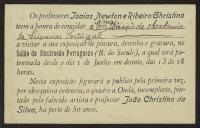 Os professores Isaias Newton e Ribeiro Christino
tem a honra de convidar
a visitar a sua exposição de pintura, desenho e gravura, no
Salão da Illustração Portugueza (R. do Seculo), a qual será pa-
tenteada desde o dia 1 de Junho em deante, das 13 ás 18
horas.
Nesta exposição figurará a publico pela primeira vez,
por obsequiosa cedencia, o quadro a Oração, incompleto, pin-
tado pelo falecido artista e professor João Christino da
Silva, ha perto de 50 anos.